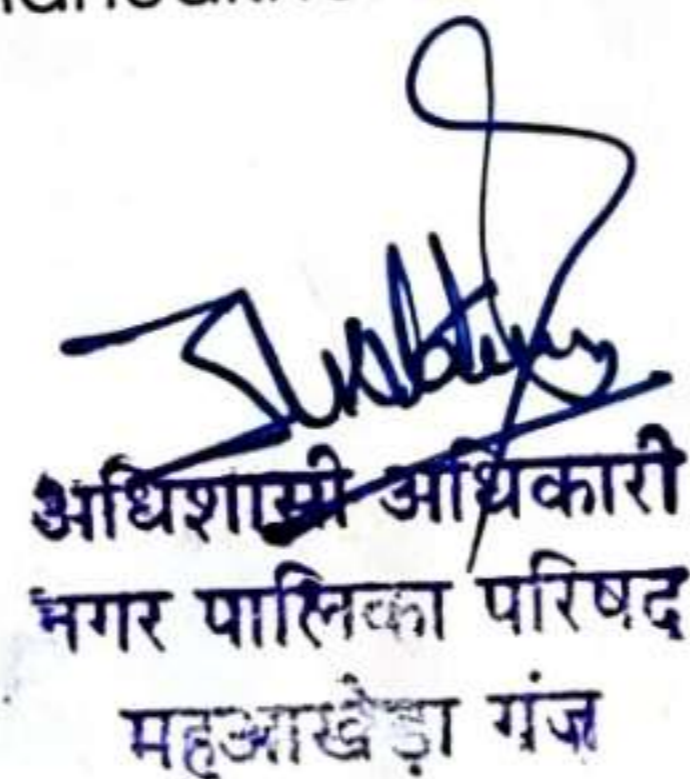 अधिशासी अधिकारी
नगर पालिका परिषद
महुआखेड़ा गंज